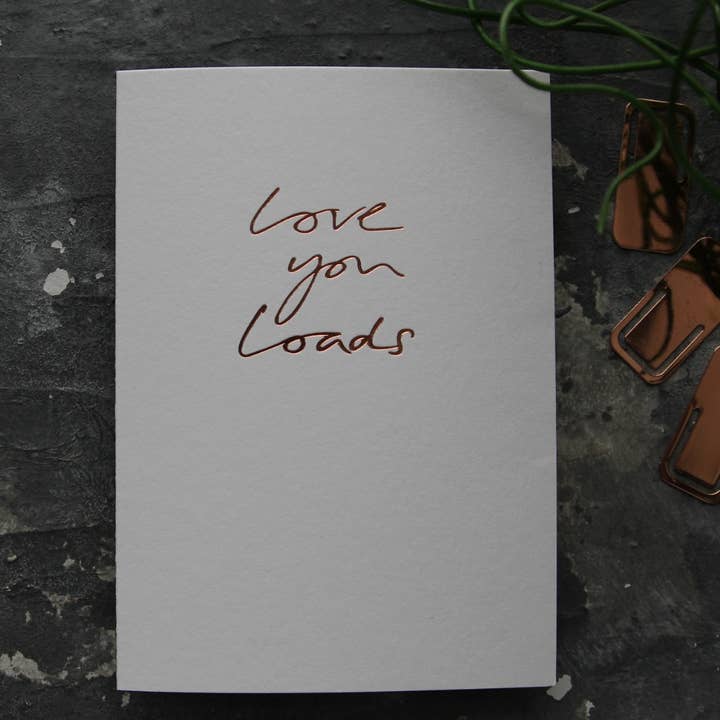 love
you
loads